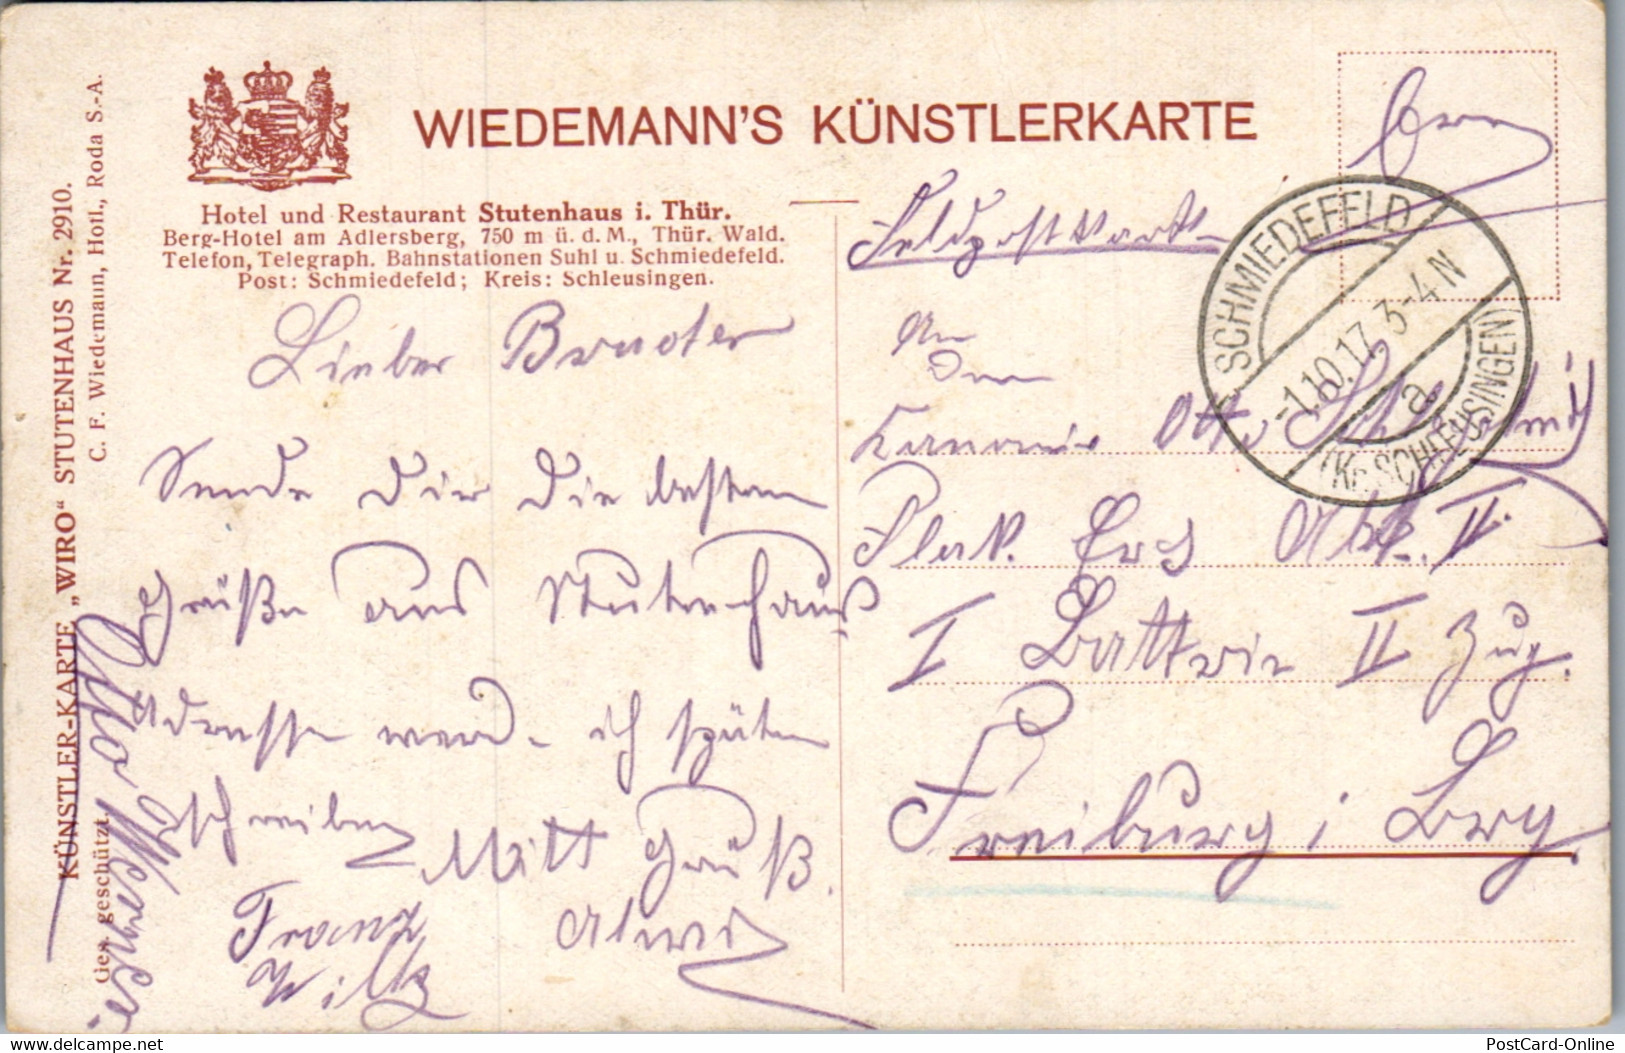 WIEDEMANN'S KÜNSTLERKARTE
Hotel und Restaurant Stutenhaus i. Thür.
Berg-Hotel am Adlersberg, 750 m ü. d. M., Thür. Wald.
Telefon, Telegraph. Bahnstationen Suhl u. Schmiedefeld.
Post: Schmiedefeld; Kreis: Schleusingen.
KÜNSTLER-KARTE „WIRO“ STUTENHAUS Nr. 2910.
Ges. geschützt. C. F. Wiedemann, Hofl., Roda S.-A.
Lieber Bruder
Sende Dir die besten
Grüße aus Stutenhaus
Adresse werd. ich später
schreiben Mitt Gruß.
Franz Alwi
Wilk
Otto
Feldpostkarte
SCHMIEDEFELD
-1.10.17. 3-4 N
a
(Kr. SCHLEUSINGEN)
An
Den
Kanonir Otto
Flak. Ers Abt. II.
I Battrie II Zug.
Freiburg i Brg.
PostCard-Online
delcampe.net